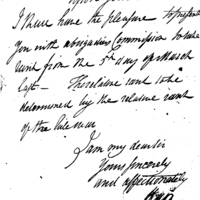 I there have the pleasure to present
you with a brigadiers Commission to take
rank from the 5th day of March
last — The relative rank to be
determined by the relative rank
of the late war
I am my dear sir
Yours sincerely
and affectionately